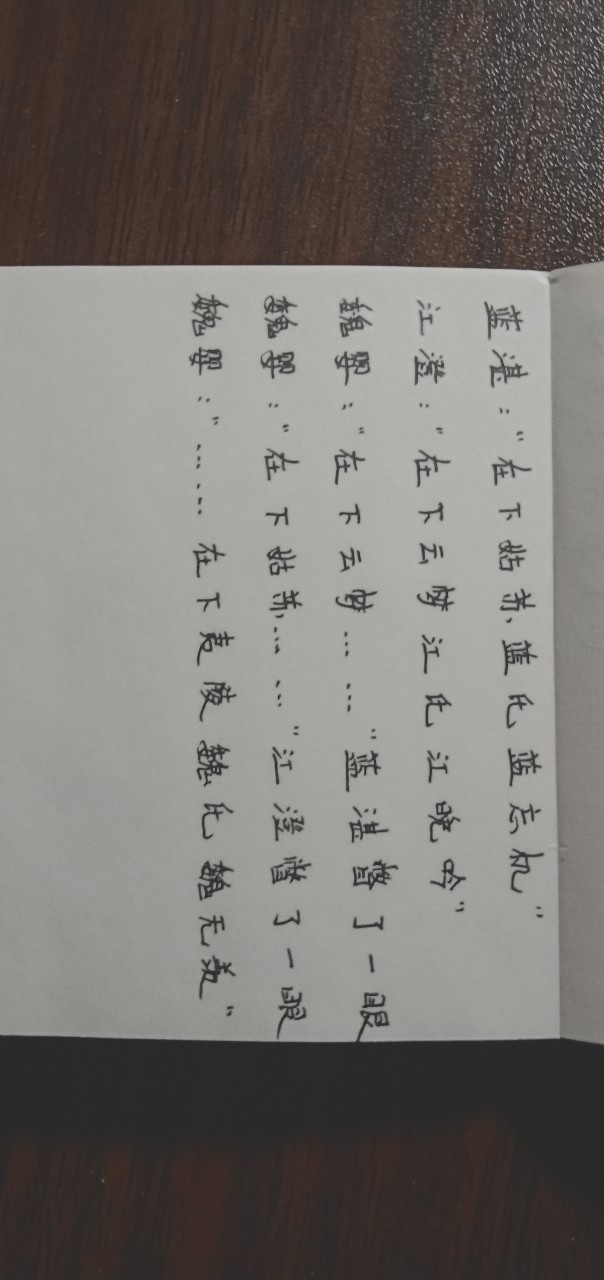 蓝湛："在下姑苏蓝氏蓝忘机"
江澄："在下云梦江氏江晚吟"
魏婴："在下云梦……"蓝湛瞥了一眼
魏婴："在下姑苏……"江澄瞥了一眼
魏婴："……在下夷陵魏氏魏无羡"